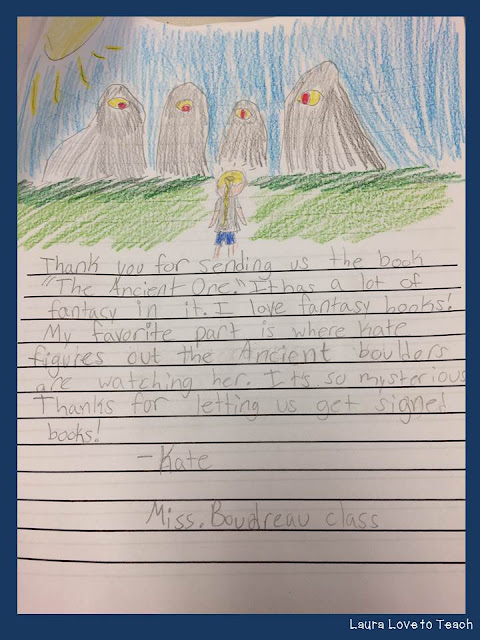 Thank you for sending us the book
"The Ancient One." It has a lot of
fantasy in it. I love fantasy books!
My favorite part is where Kate
figures out the Ancient boulders
are watching her. It's so mysterious
Thanks for letting us get signed
books!
-Kate
Miss. Boudreau class
Laura Love to Teach